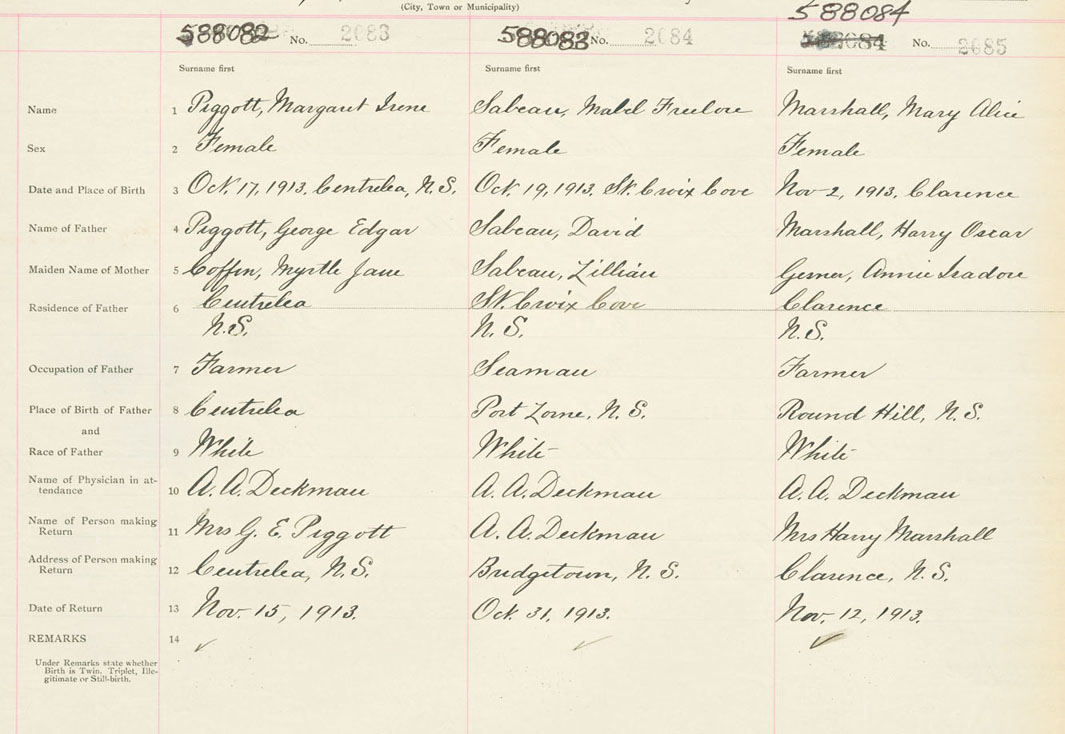 (City, Town or Municipality)
588082 No. 2683 588083 No. 2684 588084 No. 2685
Surname first Surname first Surname first
Name 1 Piggott, Margaret Irene Sabeau, Mabel Freelove Marshall, Mary Alice
Sex 2 Female Female Female
Date and Place of Birth 3 Oct. 17, 1913. Centrelea, N.S. Oct 19, 1913. St. Croix Cove Nov 2, 1913, Clarence
Name of Father 4 Piggott, George Edgar Sabeau, David Marshall, Harry Oscar
Maiden Name of Mother 5 Coffin, Myrtle Jane Sabeau, Lillian Gesner, Annie Isadore
Residence of Father 6 Centrelea St. Croix Cove Clarence
N.S. N.S. N.S.
Occupation of Father 7 Farmer Seaman Farmer
Place of Birth of Father 8 Centrelea Port Lorne, N.S. Round Hill, N.S.
and
Race of Father 9 White White White
Name of Physician in at-
tendance 10 A. A. Deckman A. A. Deckman A. A. Deckman
Name of Person making
Return 11 Mrs G. E. Piggott A. A. Deckman Mrs Harry Marshall
Address of Person making
Return 12 Centrelea, N.S. Bridgetown, N.S. Clarence, N.S.
Date of Return 13 Nov. 15, 1913. Oct. 31, 1913. Nov. 12, 1913.
REMARKS 14
Under Remarks state whether
Birth is Twin, Triplet, Ille-
gitimate or Still-birth.